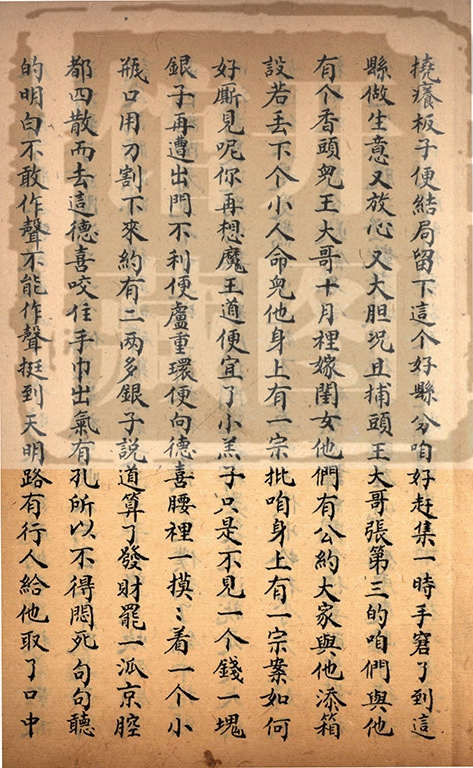 撓癢板子便結局留下這个好縣分咱好赶集一時手窘了到這
縣做生意又放心又大胆况且捕頭王大哥張第三的咱們與他
有个香頭兒王大哥十月裡嫁閨女他們有公約大家與他添箱
設若丢下个小人命兒他身上有一宗批咱身上有一宗案如何
好厮見呢你再想魔王道便宜了小羔子只是不見一个錢一塊
銀子再遭出門不利便盧重環便向德喜腰裡一摸〻着一个小
瓶口用刀割下來約有二两多銀子説道算了發財罷一派京腔
都四散而去這德喜咬住手巾出氣有孔所以不得悶死句句聽
的明白不敢作聲不能作聲挺到天明路有行人給他取了口中